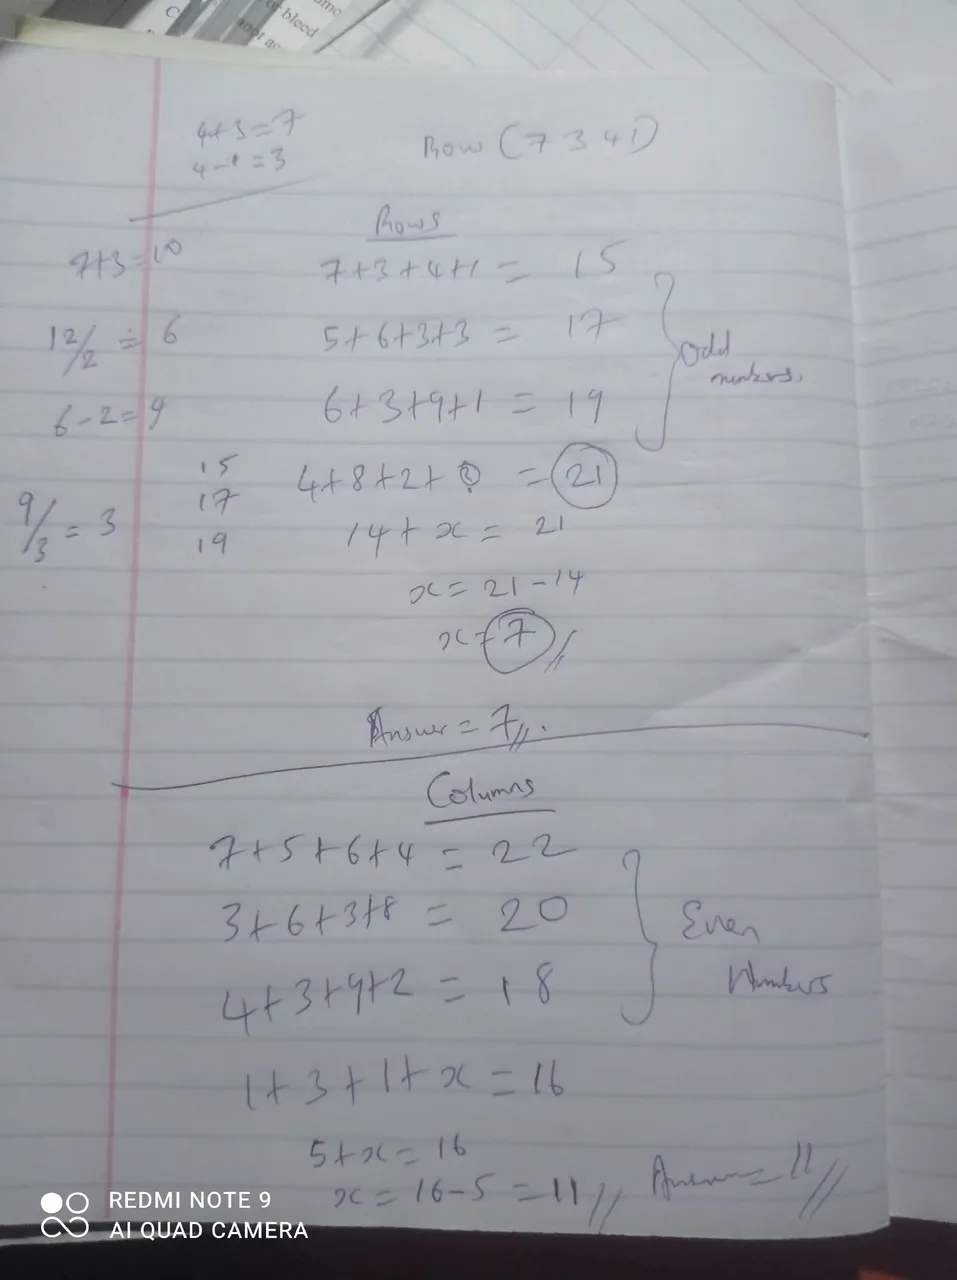 or bleed
4+3=7
4-1=3
Row (7 3 4 1)
Rows
7+3=10
7+3+4+1 = 15
12/2 = 6
5+6+3+3 = 17
Odd
numbers.
6-2=4
6+3+9+1 = 19
15
4+8+2+? = 21
17
9/3 = 3
19
14+x = 21
x = 21-14
x = 7 //
Answer = 7 //.
Columns
7+5+6+4 = 22
3+6+3+8 = 20
Even
Numbers
4+3+9+2 = 18
1+3+1+x = 16
5+x = 16
x = 16-5 = 11 //
Answer = 11 //
REDMI NOTE 9
AI QUAD CAMERA